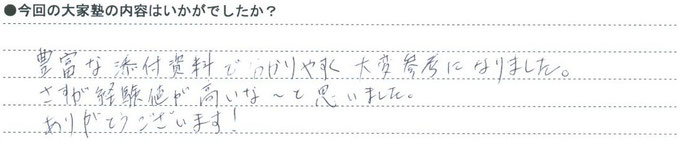 ●今回の大家塾の内容はいかがでしたか？
豊富な添付資料で分かりやすく大変参考になりました。
さすが経験値が高いな～と思いました。
ありがとうございます！